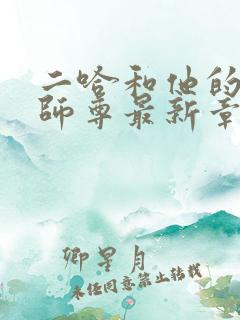 二哈和他的
師尊最新章
卿星月
未经同意禁止转载